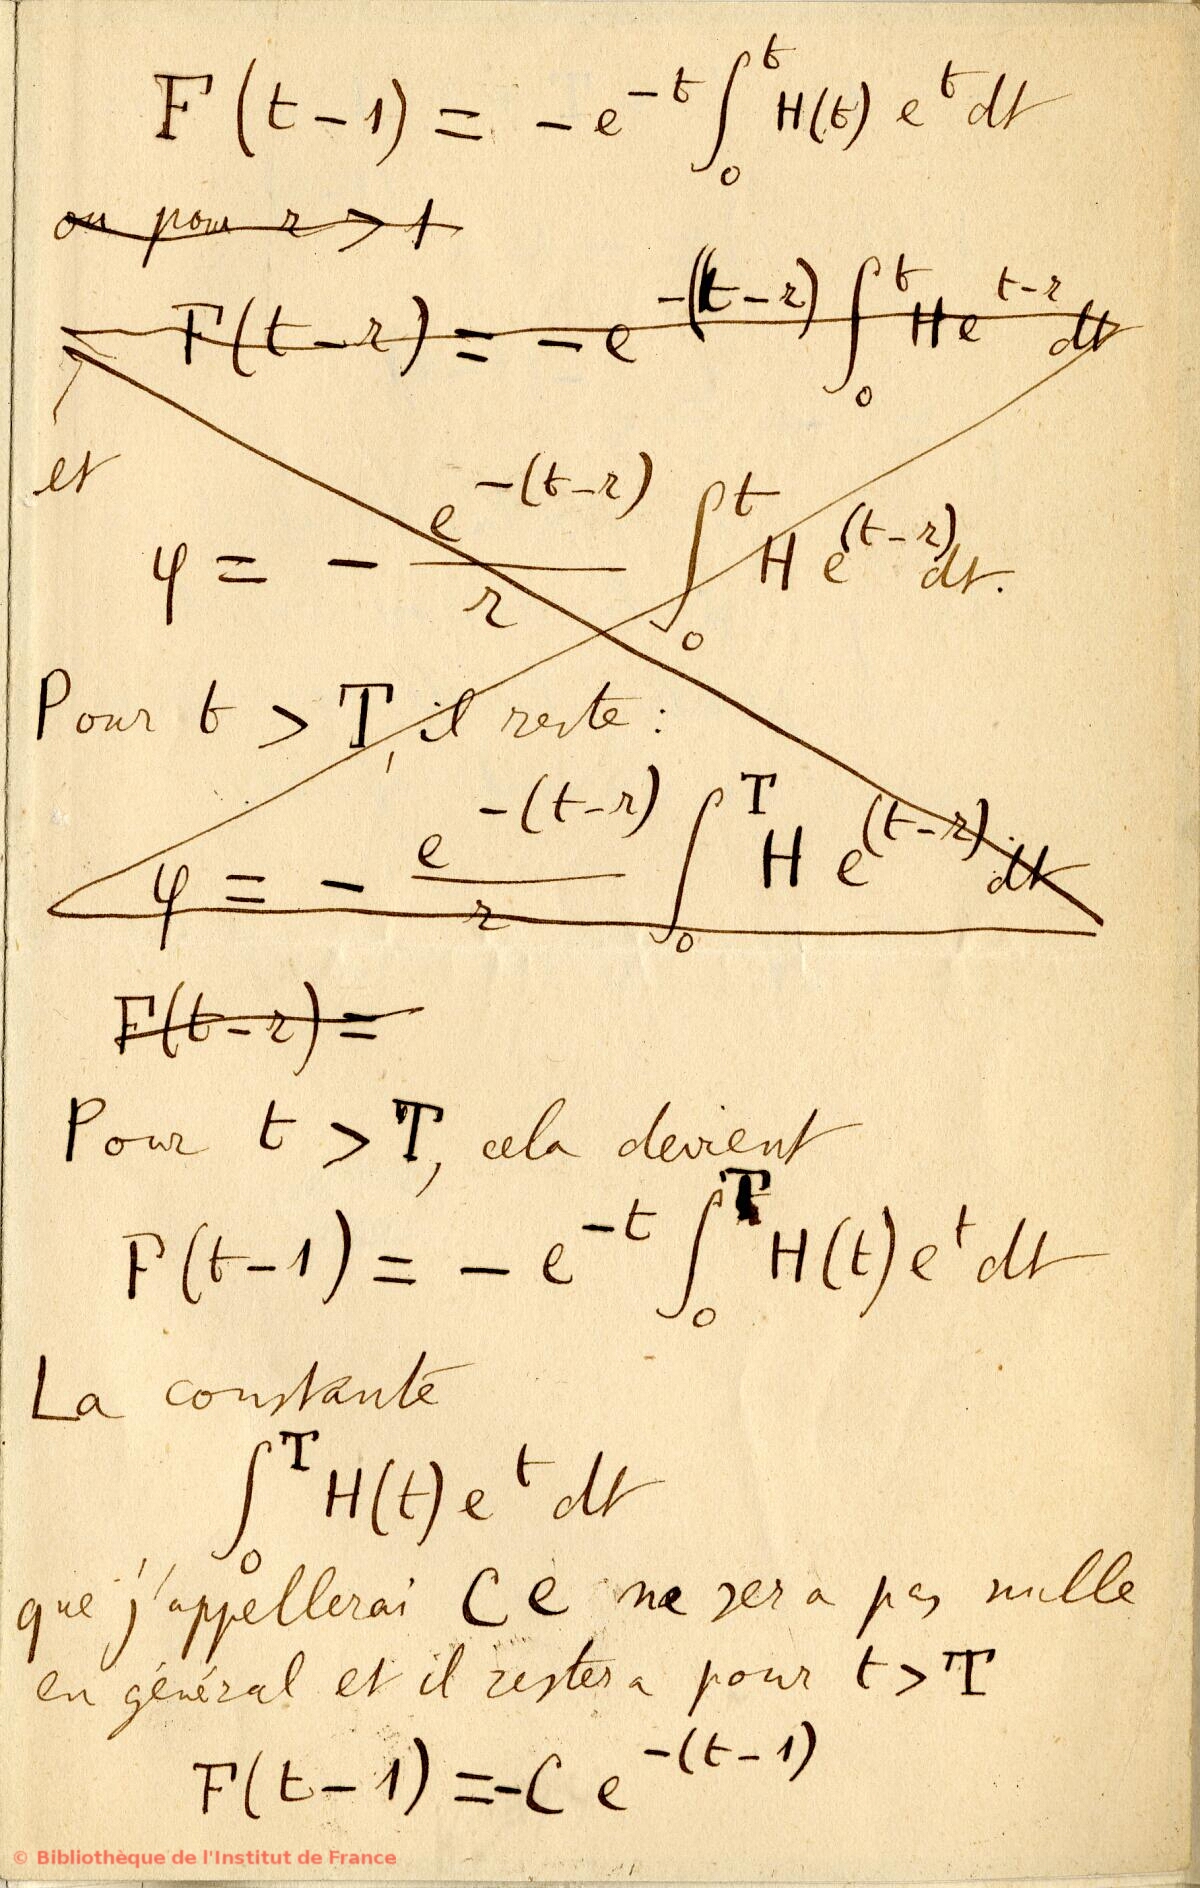 F(t-1) = -e^{-t} ∫_0^t H(t) e^t dt
ou pour r > 1
F(t-r) = -e^{-(t-r)} ∫_0^t H e^{t-r} dt
et
φ = - \frac{e^{-(t-r)}}{r} ∫_0^t H e^{(t-r)} dt.
Pour t > T, il reste :
φ = - \frac{e^{-(t-r)}}{r} ∫_0^T H e^{(t-r)} dt
F(t-r) =
Pour t > T, cela devient
F(t-1) = - e^{-t} ∫_0^T H(t) e^t dt
La constante
∫_0^T H(t) e^t dt
que j'appellerai C e ne sera pas nulle
en général et il restera pour t > T
F(t-1) = -C e^{-(t-1)}
© Bibliothèque de l'Institut de France